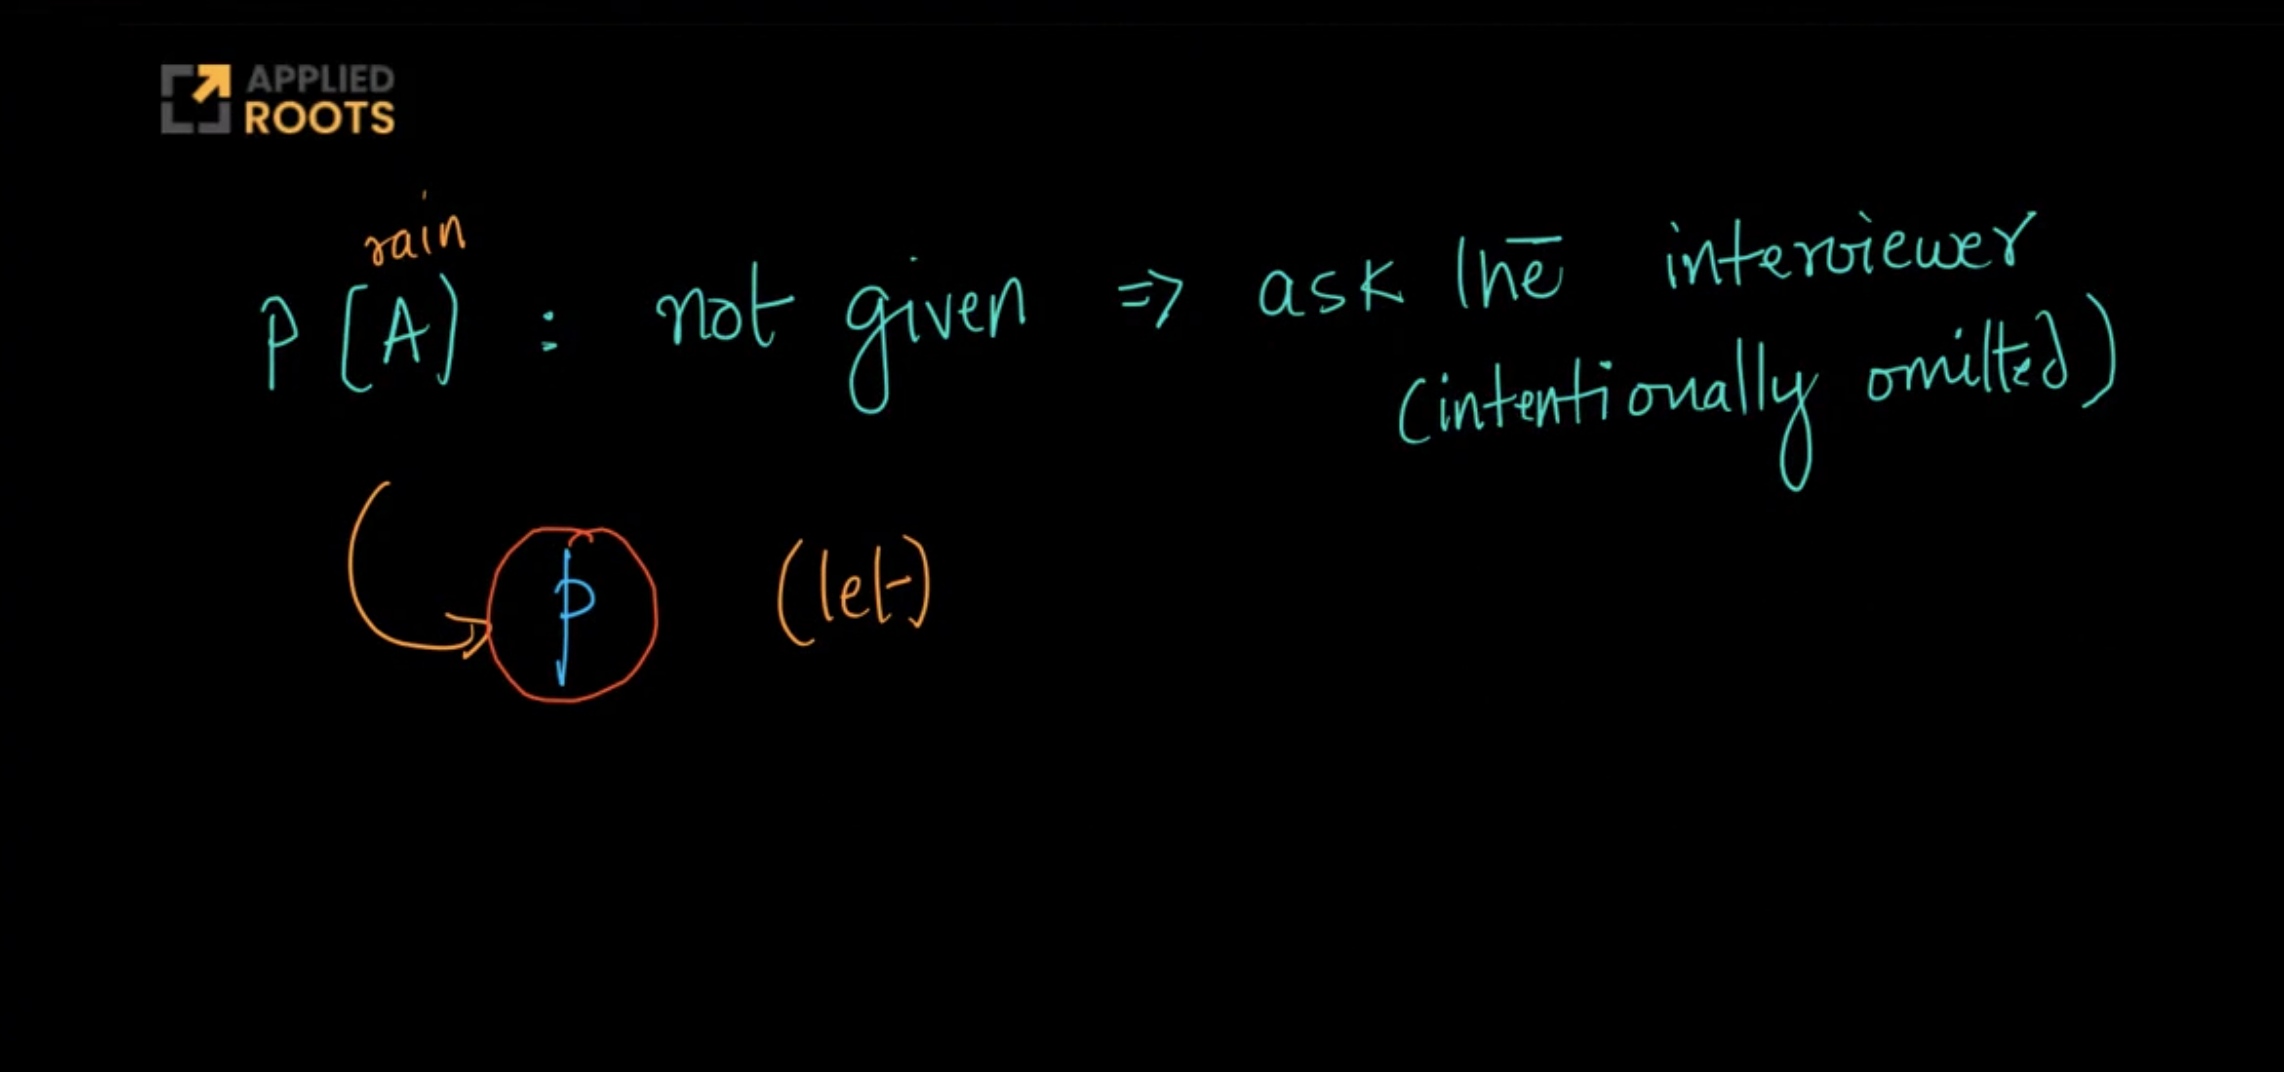 APPLIED
ROOTS
rain
P(A) : not given => ask the interviewer
(intentionally omitted)
p (let)